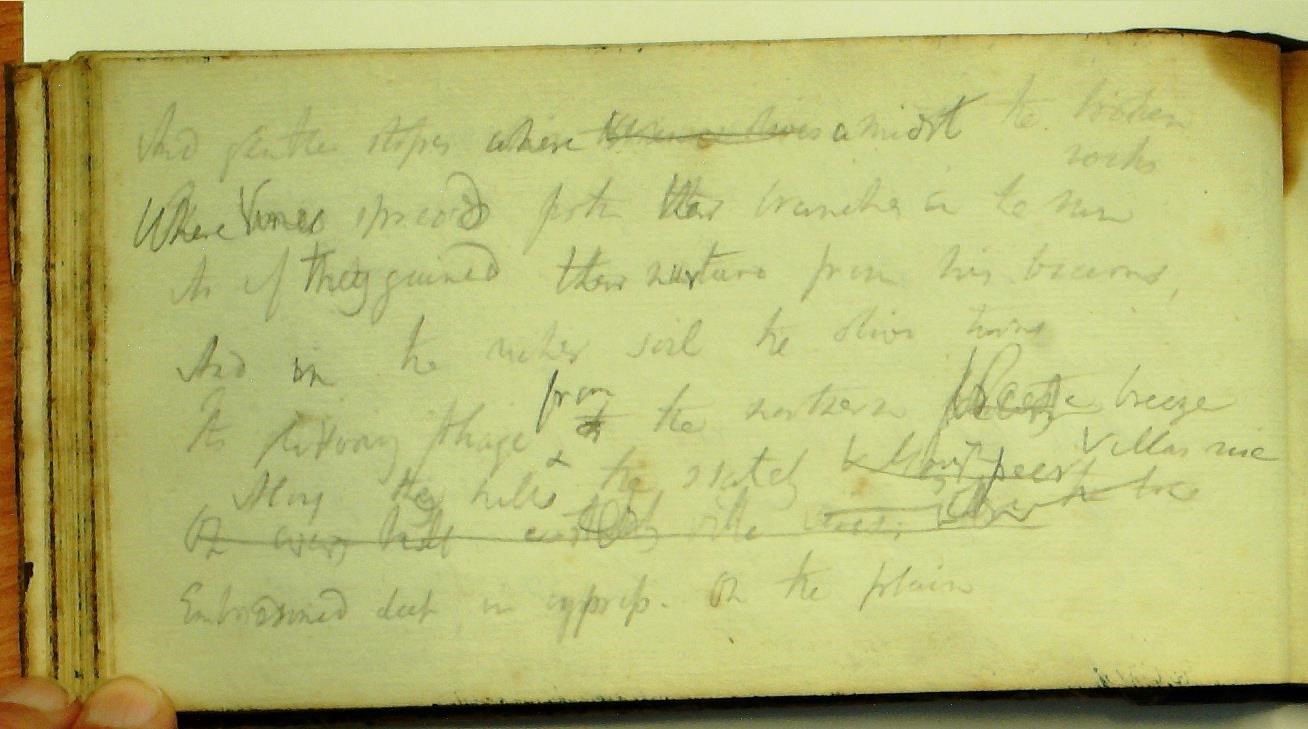 And gentle slopes where amidst the broken
rocks
Where Vines spread forth their branches in the sun
As if they gained their nurture from his beams,
And in the richer soil the olive twines
Its foliage from the northern breeze
Along the hills & the stately Villas rise
On every hill a stately villa
Embosomed deep in cypress. On the plain